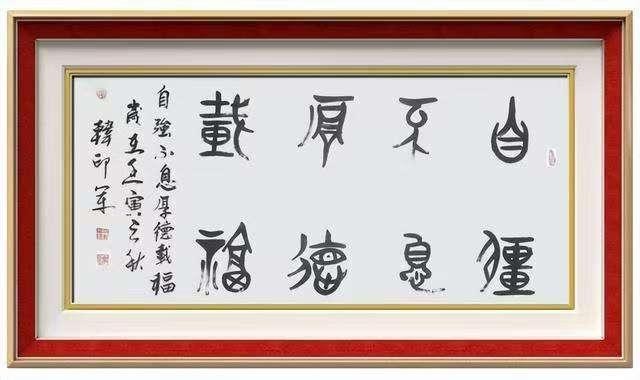 自彊
不息
厚德
載福
自強不息厚德載福
歲在壬寅之秋
韓印軍